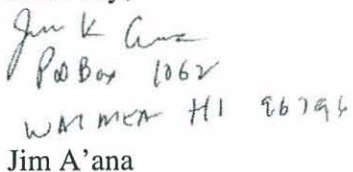 Jim K A'ana
PO Box 1062
WAIMEA HI 96796
Jim A'ana